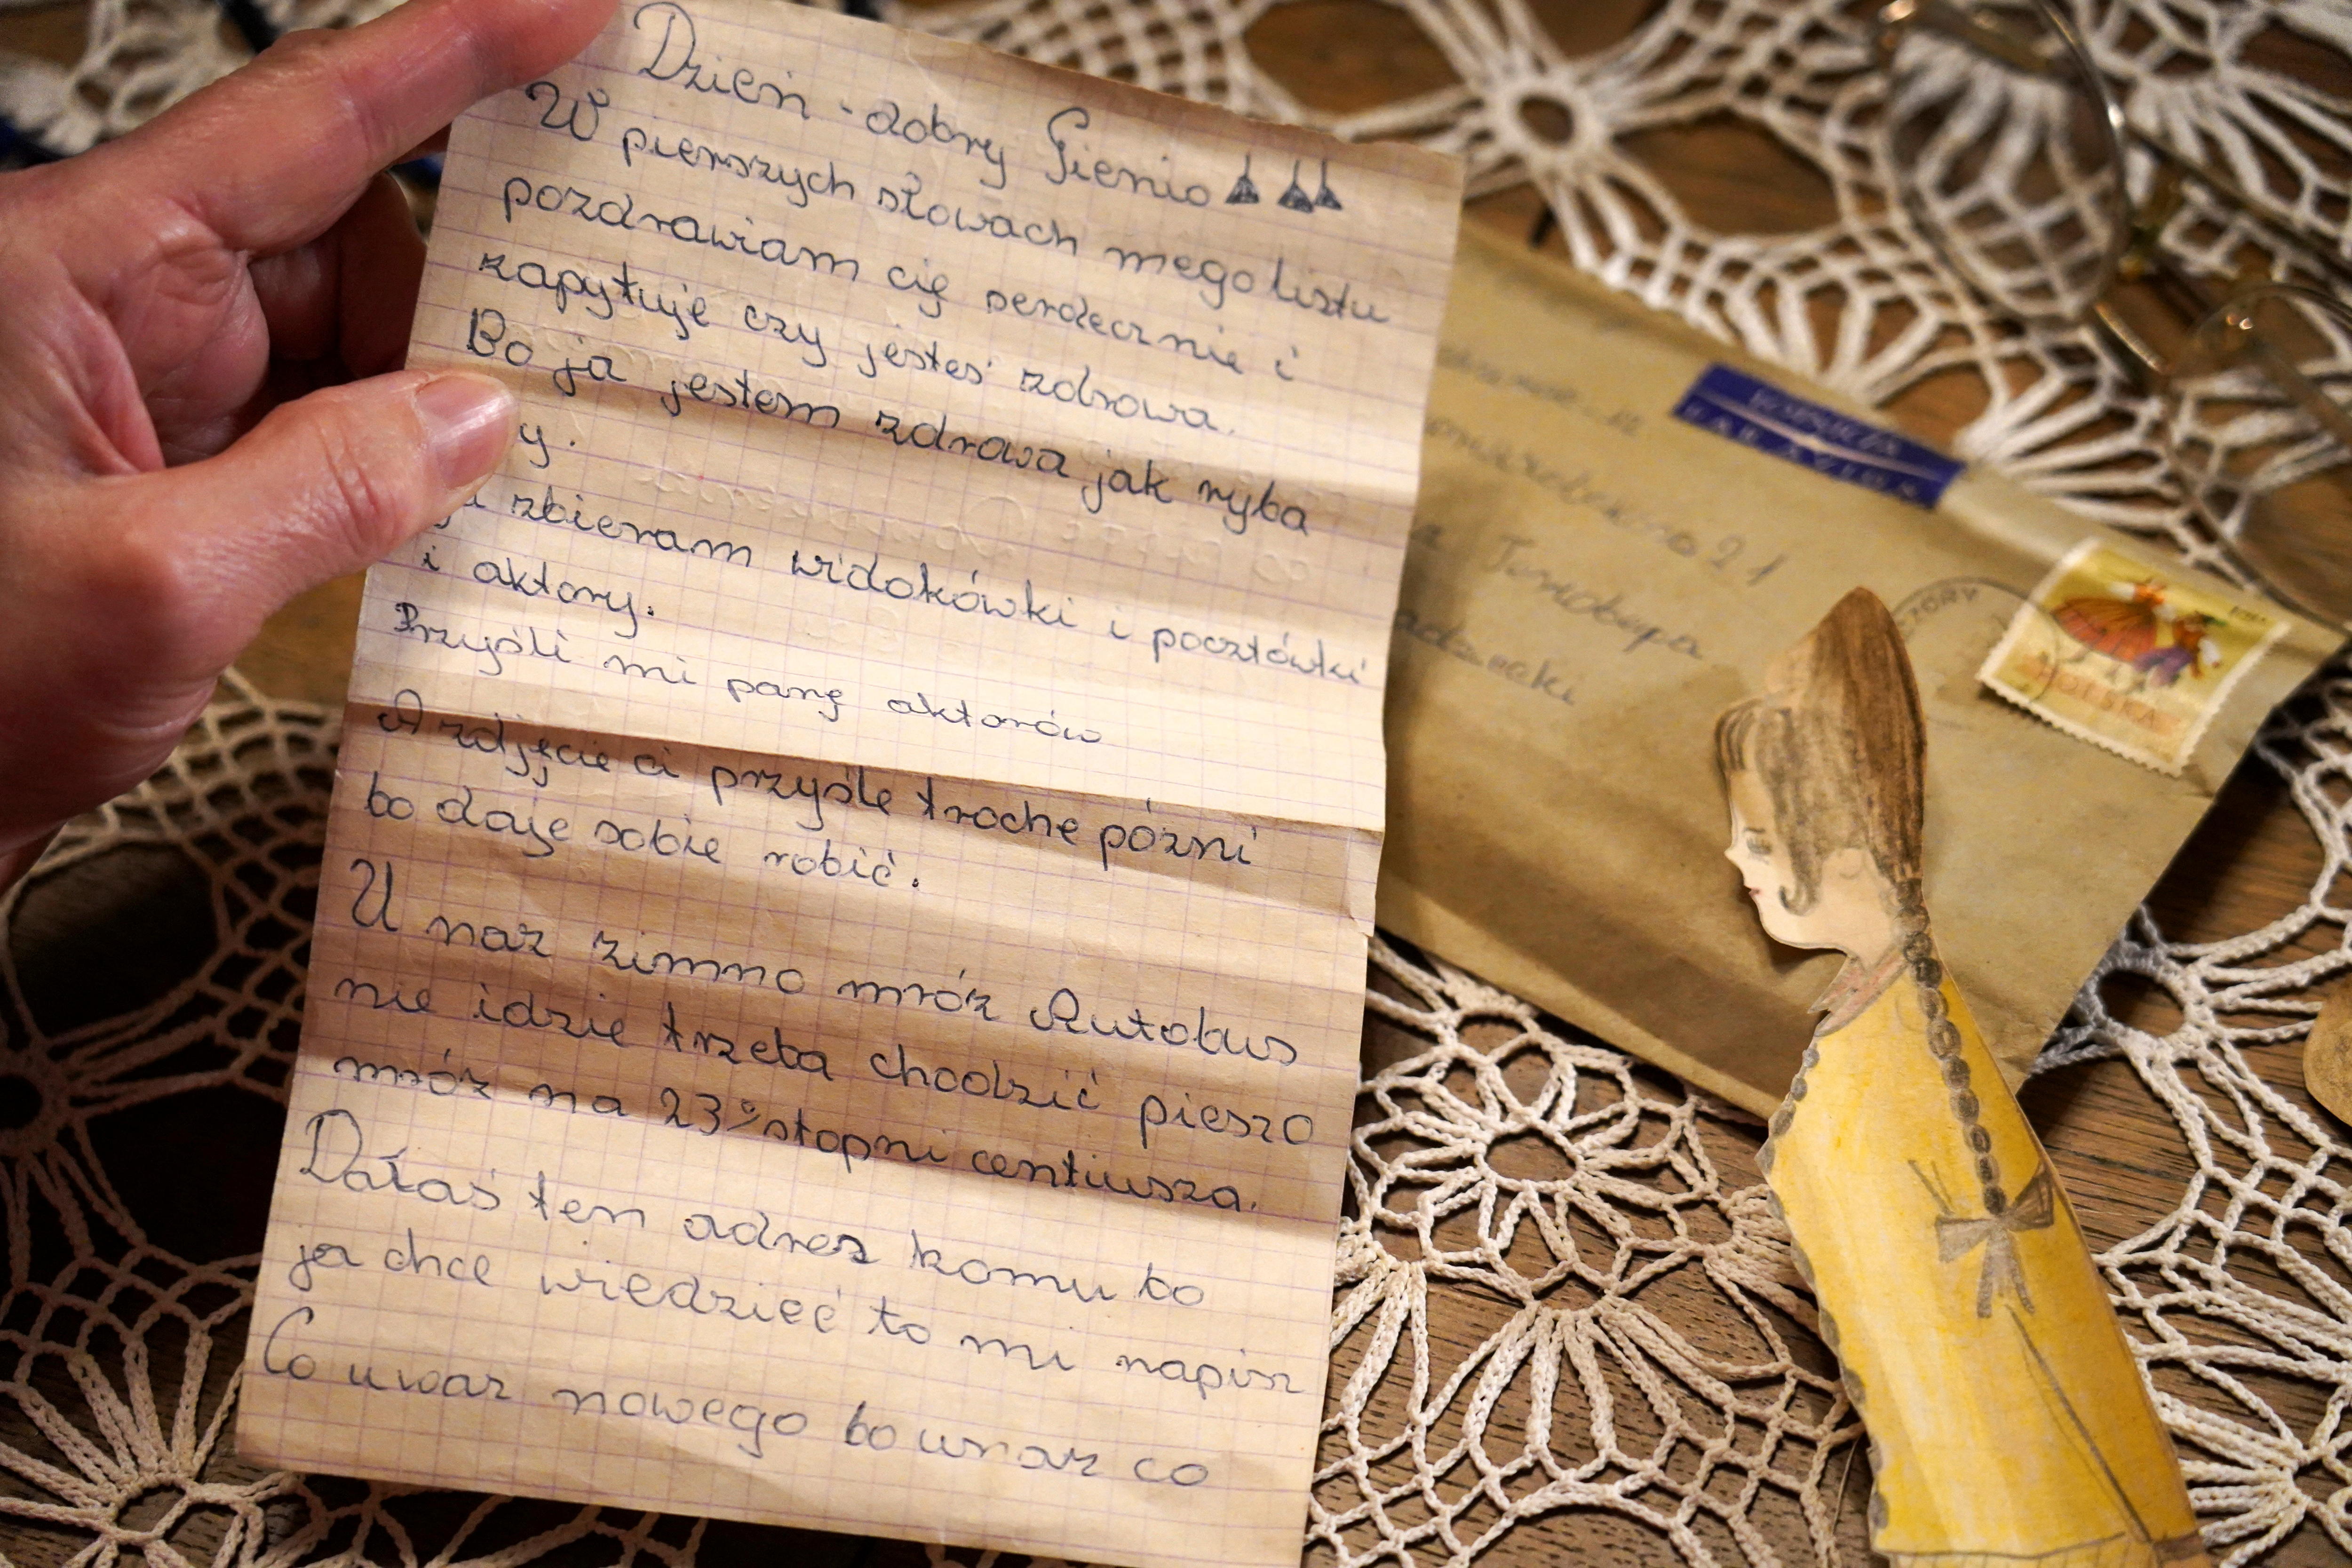 Dzień-dobry Gienio
W pierszych słowach mego listu
pozdrawiam cię serdecznie i
zapytuje czy jesteś zdrowa.
Bo ja jestem zdrowa jak ryba
y.
zbieram widokówki i pocztówki
i aktory.
Przyśli mi parę aktorów
A zdjęcie ci przyśle troche pózni
bo daję sobie robić.
U naz zimno mróz Autobus
nie idzie trzeba chodzić pieszo
mróz na 23° stopni centiusza.
Dałaś ten adres komu bo
ja chce wiedzieć to mi napisz
Co u waz nowego bo u naz co
21
POLSKA